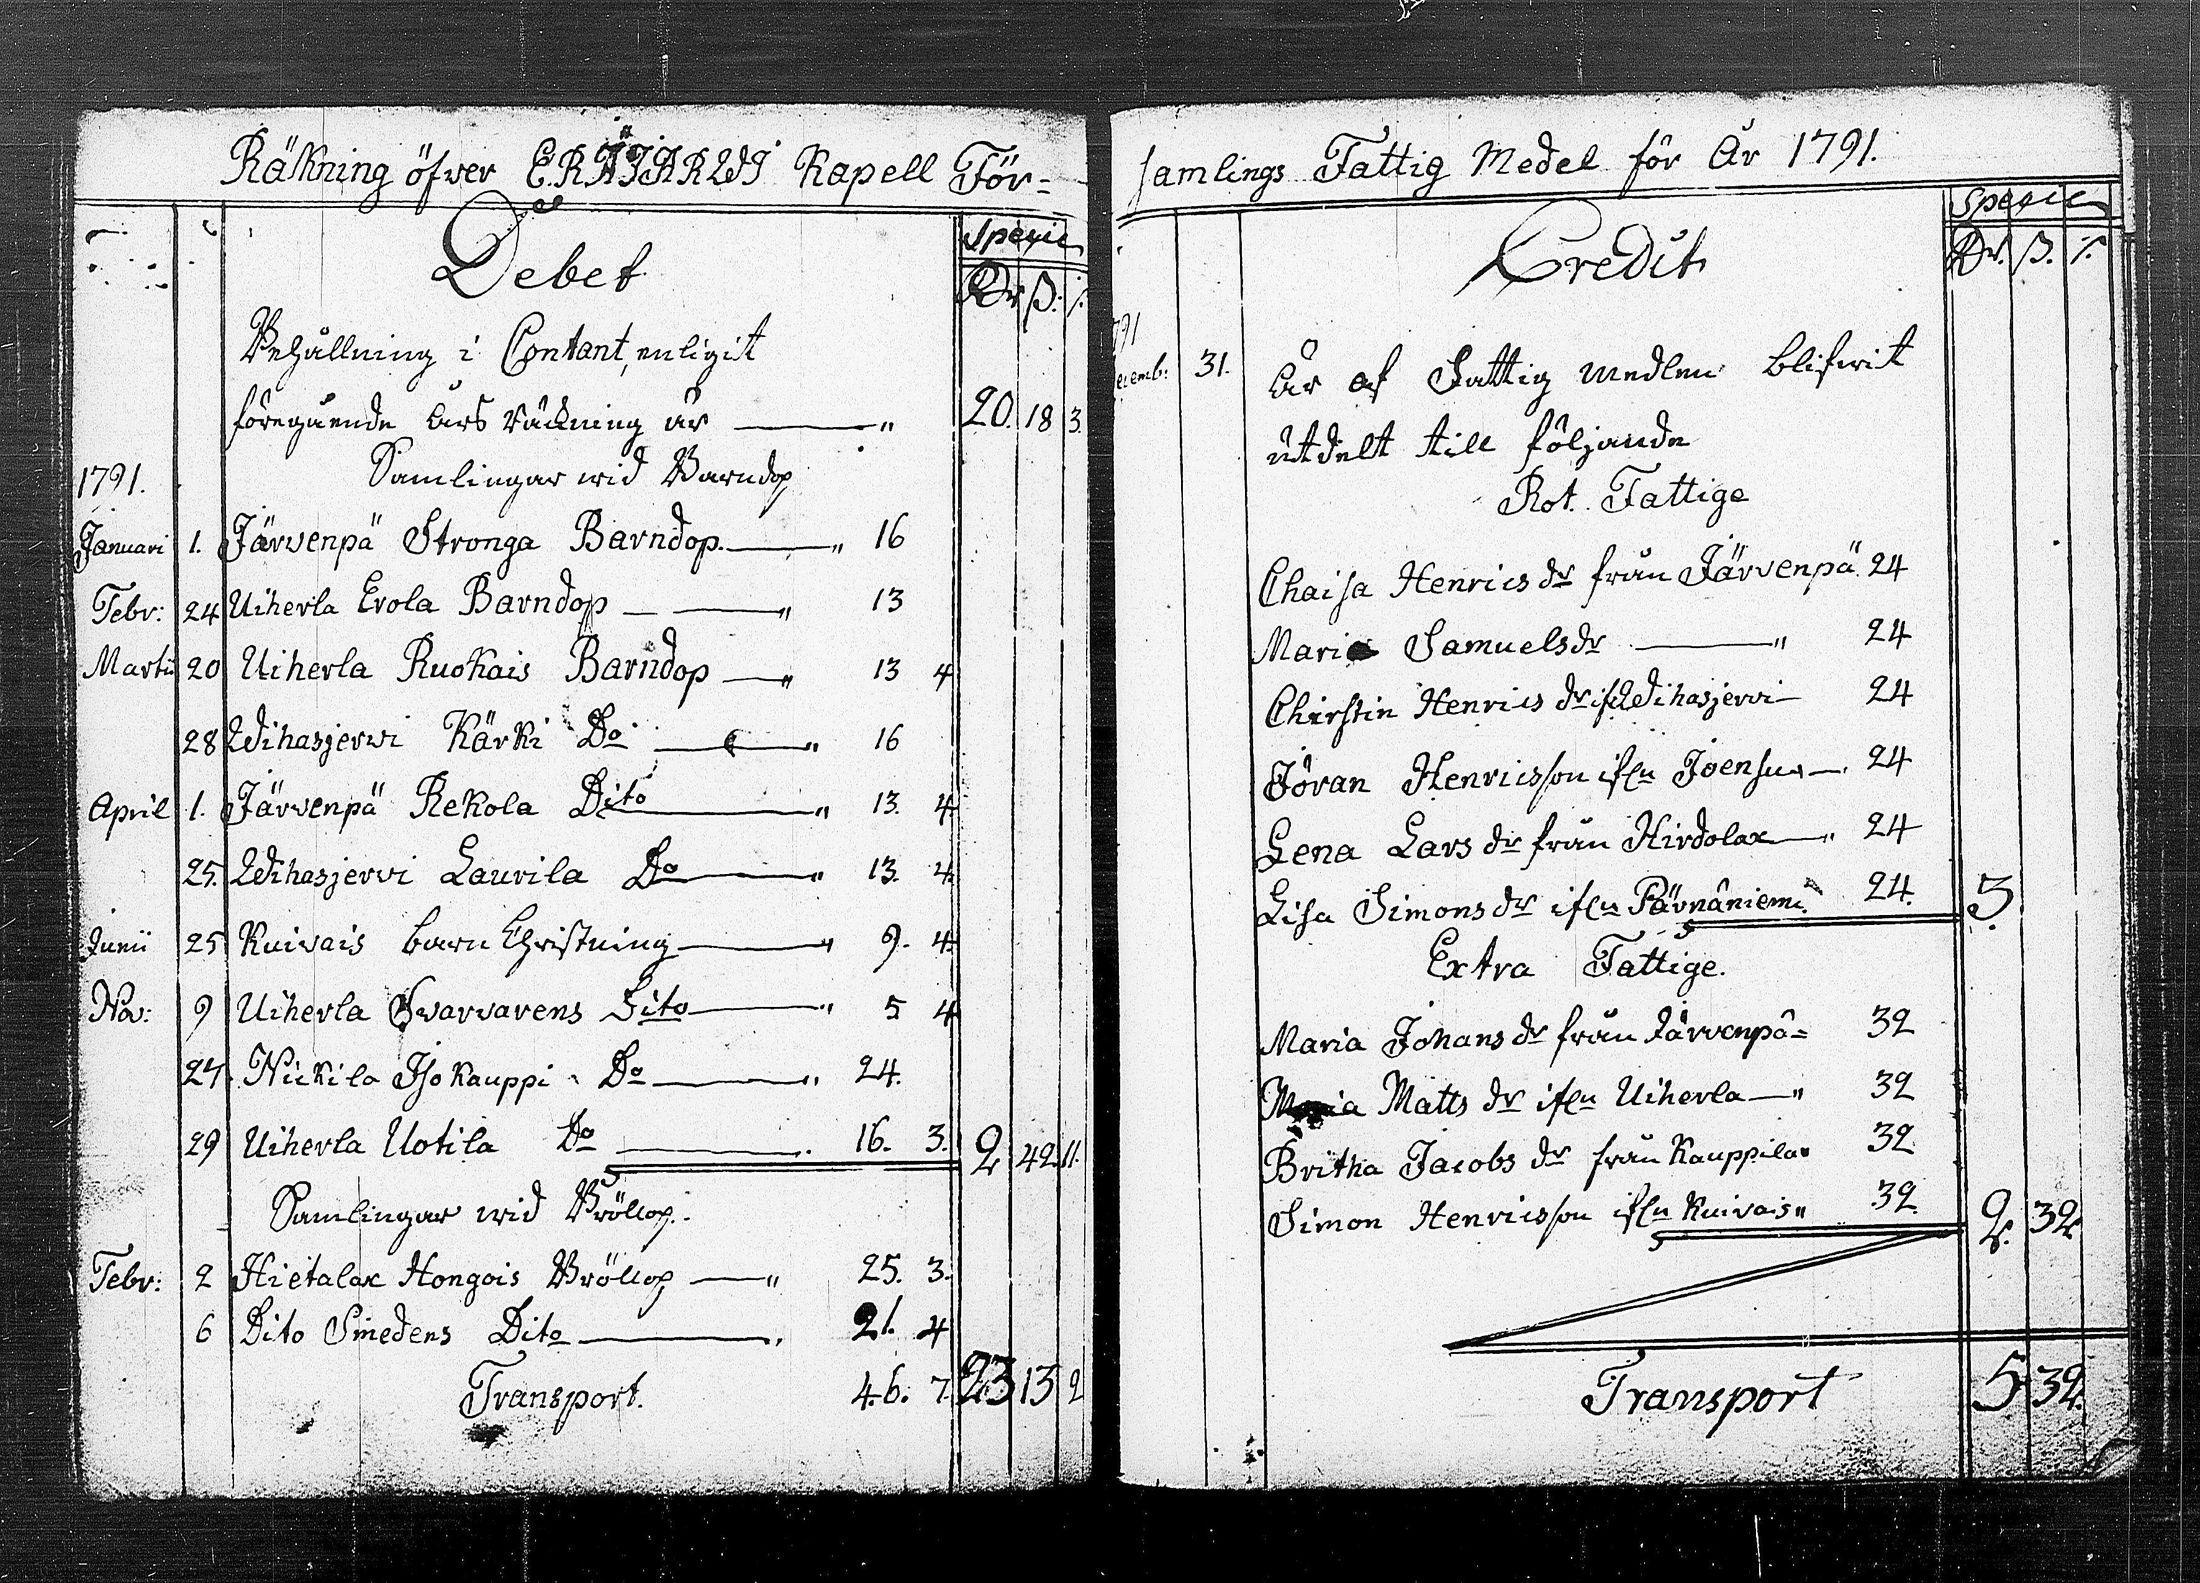 Räkning öfver ERÄJÄRWI Kapell För=
Debet
Specie
Rdr ß: /:
Behållning i Contant, enligit
föregående års räckning är — " 20. 18 3.
Samlingar wid Barndop
1791.
Januari 1. Järvenpä Stronga Barndop. — " 16
Febr: 24 Uiherla Erola Barndop — — " 13
Martii 20 Uiherla Ruokais Barndop — " 13 4
28 Wihasjerwi Kärki Do — " 16
April 1. Järvenpä Rekola Dito — " 13. 4
25. Wihasjervi Laurila Do — " 13. 4
Junii 25 Kuivais barn Christning — " 9. 4
Nov: 9 Uiherla Svarvarens Dito — " 5 4
27. Nickila Iso Kauppi Do — " 24.
29 Uiherla Uotila Do — 16. 3. 2 42. 11.
Samlingar wid Bröllop.
Febr: 2 Hietalax Hongois Bröllop — " 25. 3.
6 Dito Smedens Dito — 21. 4
Transport. 46. 7. 23 13 2
samlings Fattig Medel för År 1791.
Credit
Specie
Rdr. ß. /:
1791
Decemb: 31. är af Fattig medlen blifwit
utdelt till följande
Rot. Fattige
Chaisa Henrics dr från Järvenpä 24
Maria Samuels dr — " 24
Chirstin Henrics dr ifrn Wihasjervi — 24
Jöran Henricsson ifrn Joensuu — 24
Lena Lars dr från Hirdolax — " 24
Lisa Simons dr ifrn Pävnäniemi 24. 3.
Extra Fattige.
Maria Johans dr från Järvenpä = 32
Maria Matts dr ifrn Uiherla — " 32
Britha Jacobs dr från Kauppila " 32
Simon Henricsson ifrn Kuivais " 32. 2. 32
Transport 5 32.